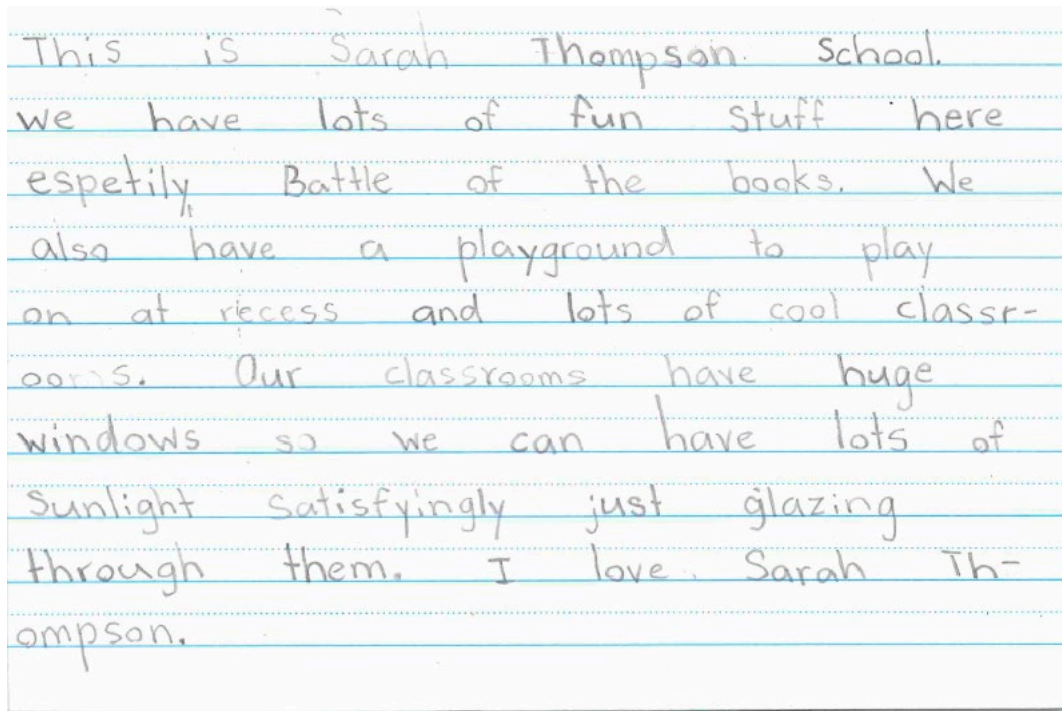 This is Sarah Thompson School.
we have lots of fun stuff here
espetily Battle of the books. We
also have a playground to play
on at recess and lots of cool classr-
ooms. Our classrooms have huge
windows so we can have lots of
sunlight satisfyingly just glazing
through them. I love Sarah Th-
ompson.